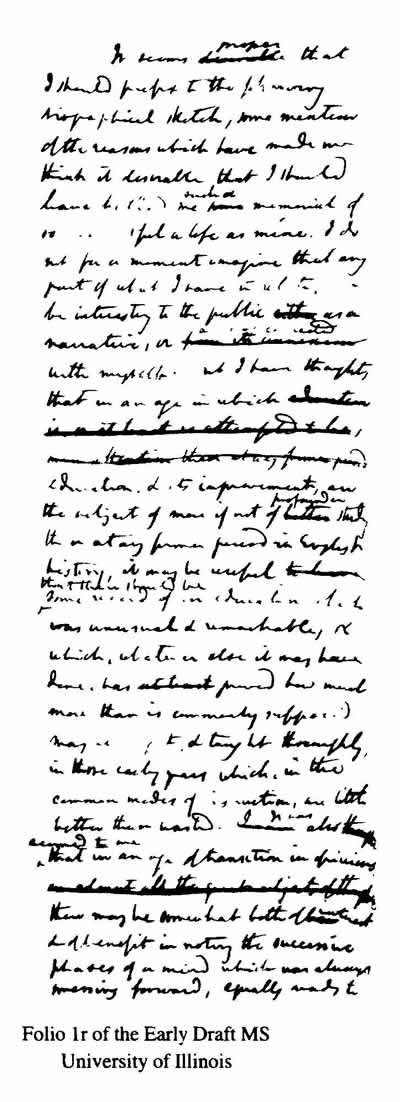 proper
It seems desirable that
I should prefix to the following
biographical sketch, some mention
of the reasons which have made me
think it desirable that I should
leave me such a memorial of
a life as mine. I do
not for a moment imagine that any
part of what I have
be interesting to the public either as a
narrative, or
with myself. I have thought,
that in an age in which education
is or at least is attempted to be,
more attention than at any former
education, & its improvement, are
profounder
the subject of more if not of better study
than at any former period in English
history, it may be useful to have
that there should be
some record of an education which
was unusual & remarkable, &
which, whatever else it may have
done, has at least proved how much
more than is commonly supposed
may & taught thoroughly,
in those early years which, in the
common modes of instruction, are little
better than wasted. It has also
seemed to me
that in an age of transition in opinions
in almost all the great subjects of
there may be somewhat both of interest
& of benefit in noting the successive
phases of a mind which was always
pressing forward, equally ready to
Folio 1r of the Early Draft MS
University of Illinois